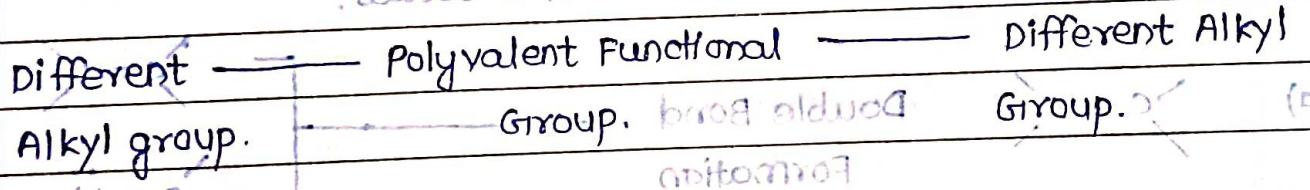 Different —— Polyvalent Functional —— Different Alkyl
Alkyl group. Group. Group.